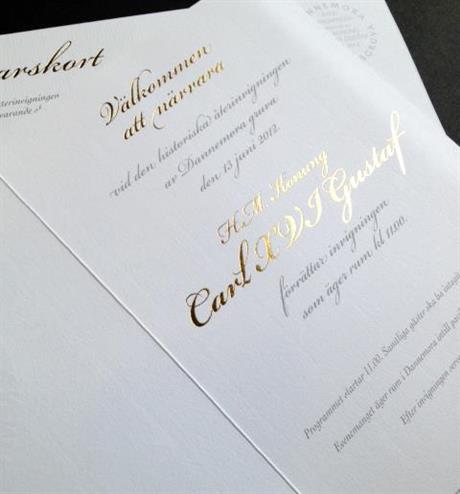 arskort
återinvigningen
varande
DANNEMORA
GRUVA
Välkommen
att närvara
vid den historiska återinvigningen
av Dannemora gruva
den 13 juni 2012.
H.M. Konung
Carl XVI Gustaf
förrättar invigningen
som äger rum kl 11.00.
Programmet startar 11.00. Samtliga gäster ska ha intagit
Evenemanget äger rum i Dannemora intill
Efter invigningen